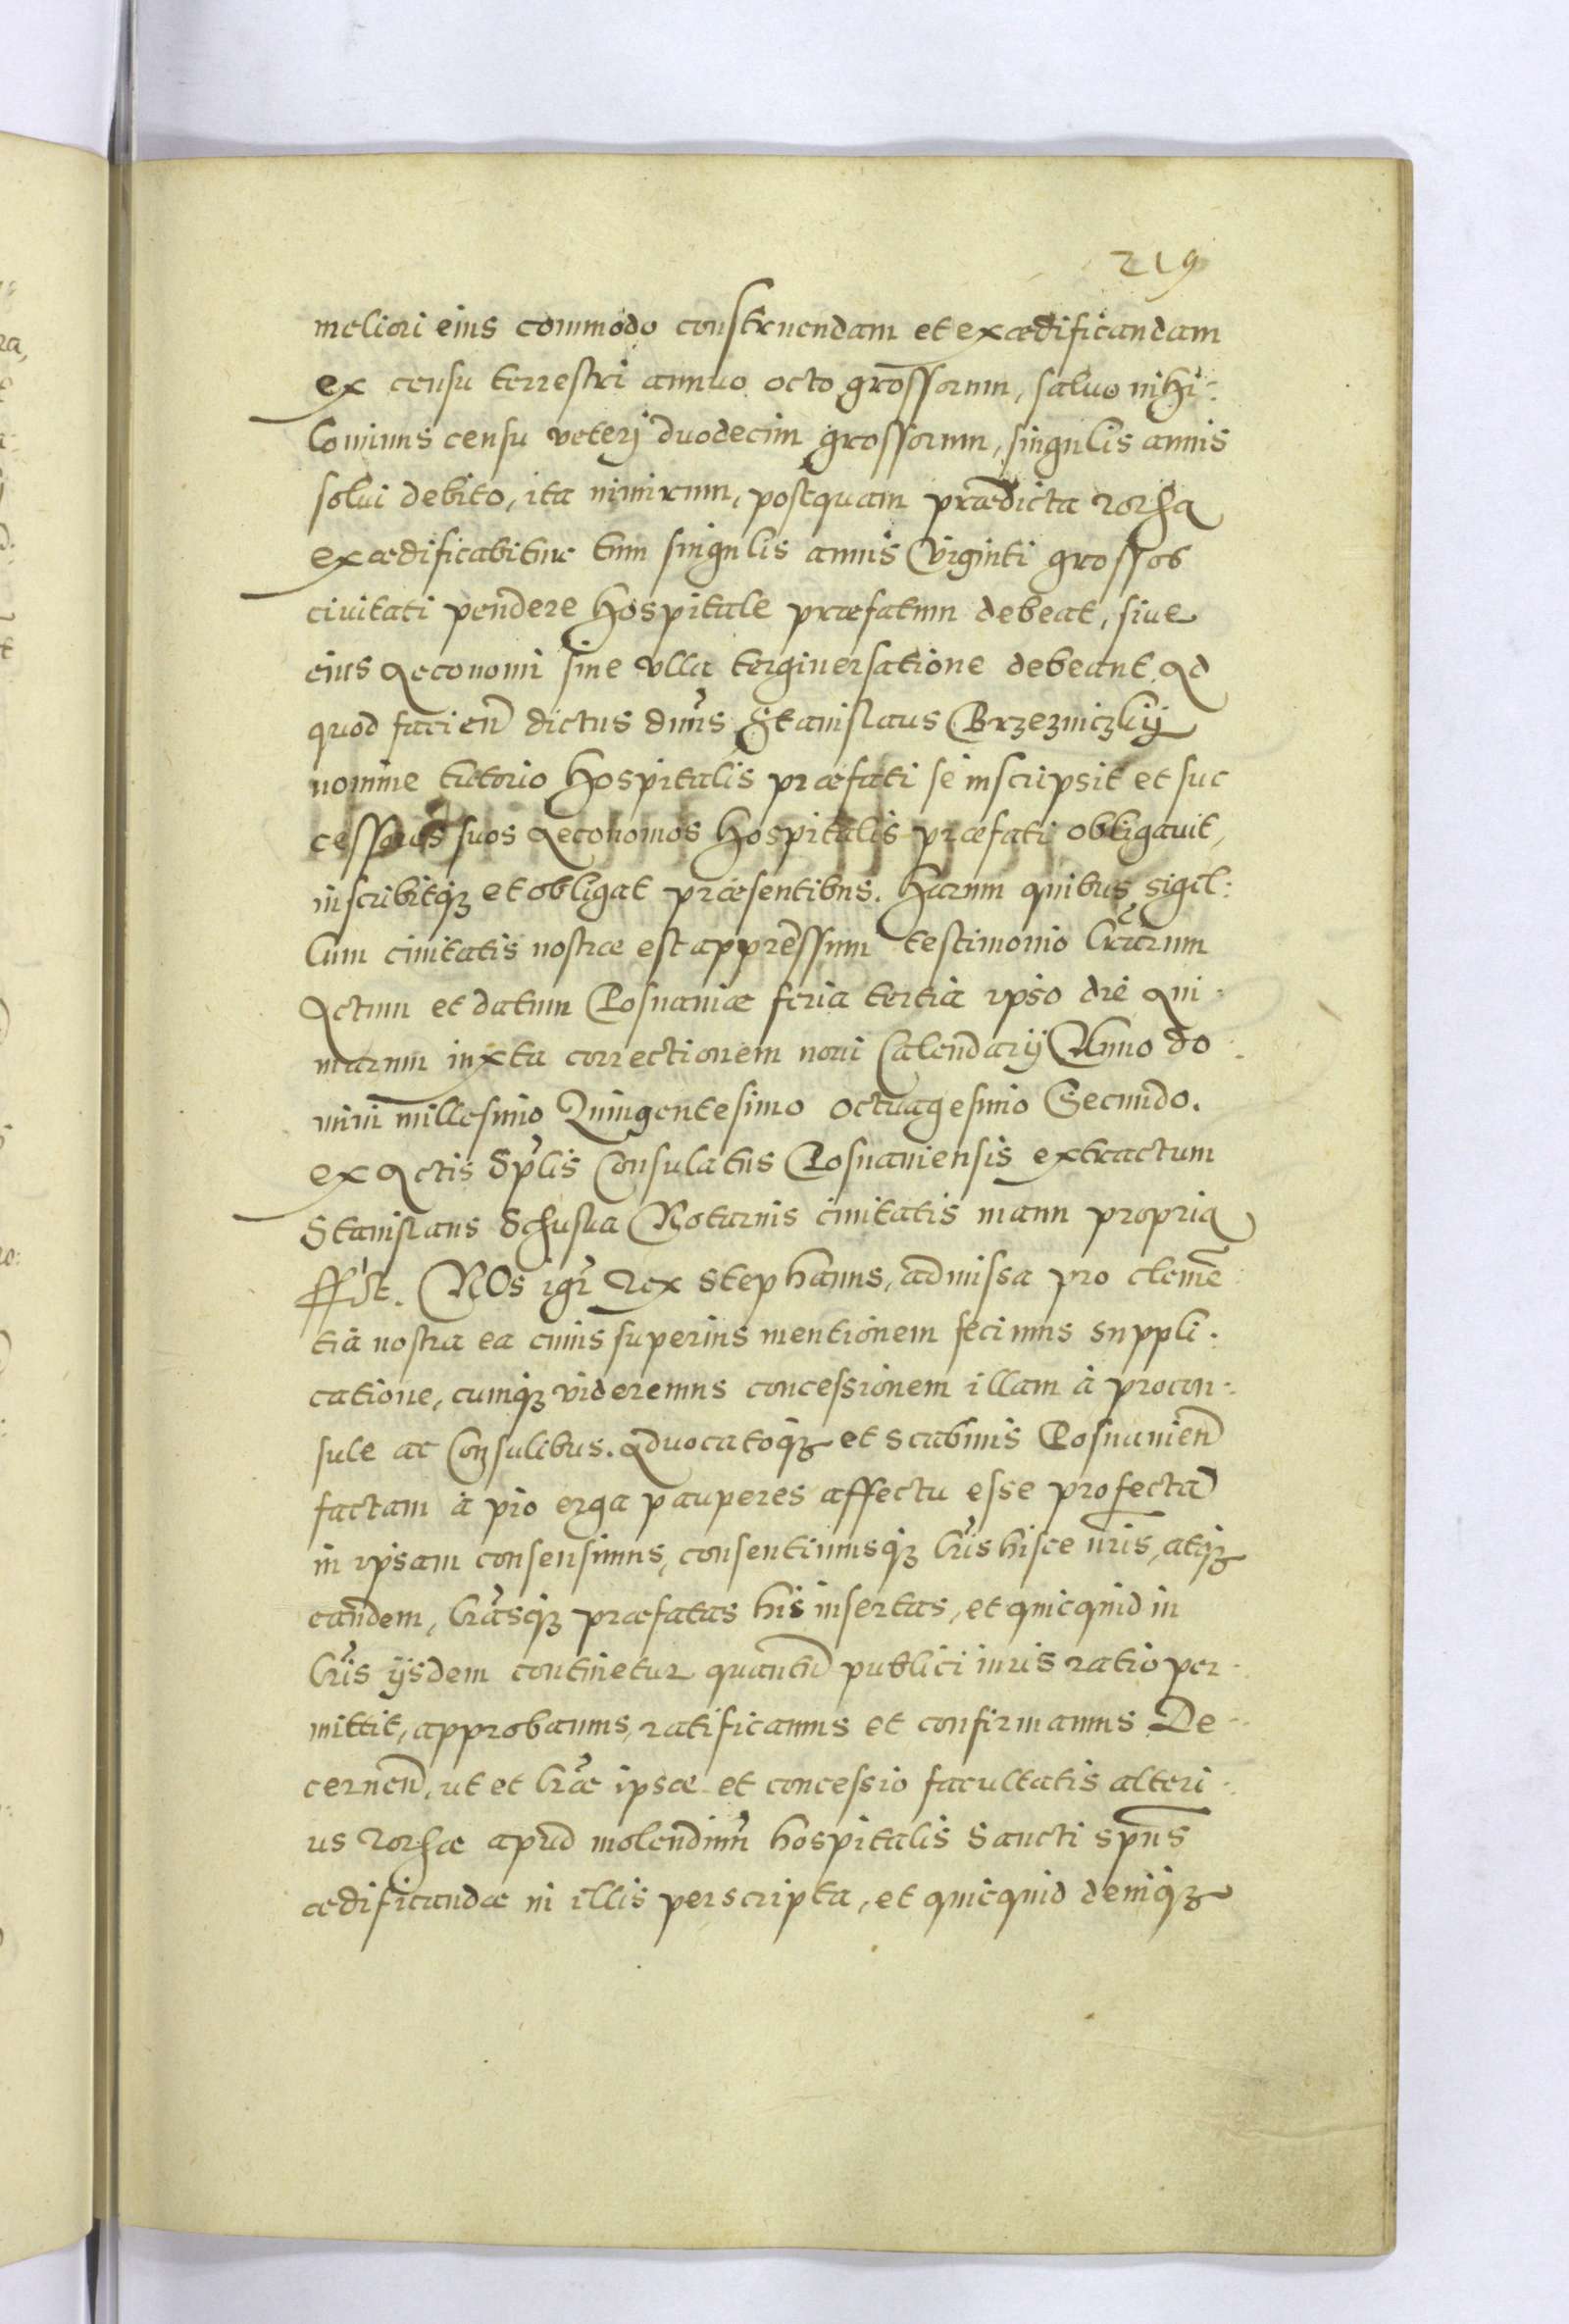 219
meliori eius commodo construendam et exædificandam
ex censu terrestri annuo octo grossorum, saluo nihi:
lominus censu veterj duodecim grossorum, singulis annis
solui debito, ita nimirum, postquam prædicta rorha
exædificabitur tum singulis annis Viginti grossos
ciuitati pendere Hospitale præfatum debeat, siue
eius œconomi sine vlla tergiuersatione debeant. Ad
quod facien̄ dictus dn̄us Stanislaus Brzezniczkij
nomine tutorio Hospitalis præfati se inscripsit et suc
cessores suos œconomos Hospitalis præfati obligauit,
inscribitqȝ et obligat præsentibus. Harum quibus sigil:
lum ciuitatis nostræ est appressum testimonio lr̄arum
Actum et datum Posnaniæ feria tertia ipso die Qui:
marum iuxta correctionem noui Calendarij Anno do:
mini millesimo Quingentesimo octuagesimo Secundo.
ex Actis Sp̄lis Consulatus Posnaniensis extractum
Stanislaus Schusla Notarius ciuitatis manu propria
sspt. NOs igr̄ Rex Stephanus, admissa pro clemē
tia nostra ea cuius superius mentionem fecimus suppli:
catione, cumqȝ videremus concessionem illam à procon:
sule ac Consulibus. Aduocatoqȝ et scabinis Posnanien̄
factam à pio erga pauperes affectu esse profectā
in ipsam consensimus, consentimusqȝ lr̄is hisce nr̄is, atqȝ
eandem, lr̄asqȝ præfatas his insertas, et quicquid in
lr̄is ijsdem continetur quantū publici iuris ratio per:
mittit, approbamus, ratificamus et confirmamus De:
cernen̄, ut et lr̄æ ipsæ et concessio facultatis alteri:
us rorhæ apud molendinū hospitalis Sancti sp̄us
ædificandæ in illis perscripta, et quicquid deniqȝ